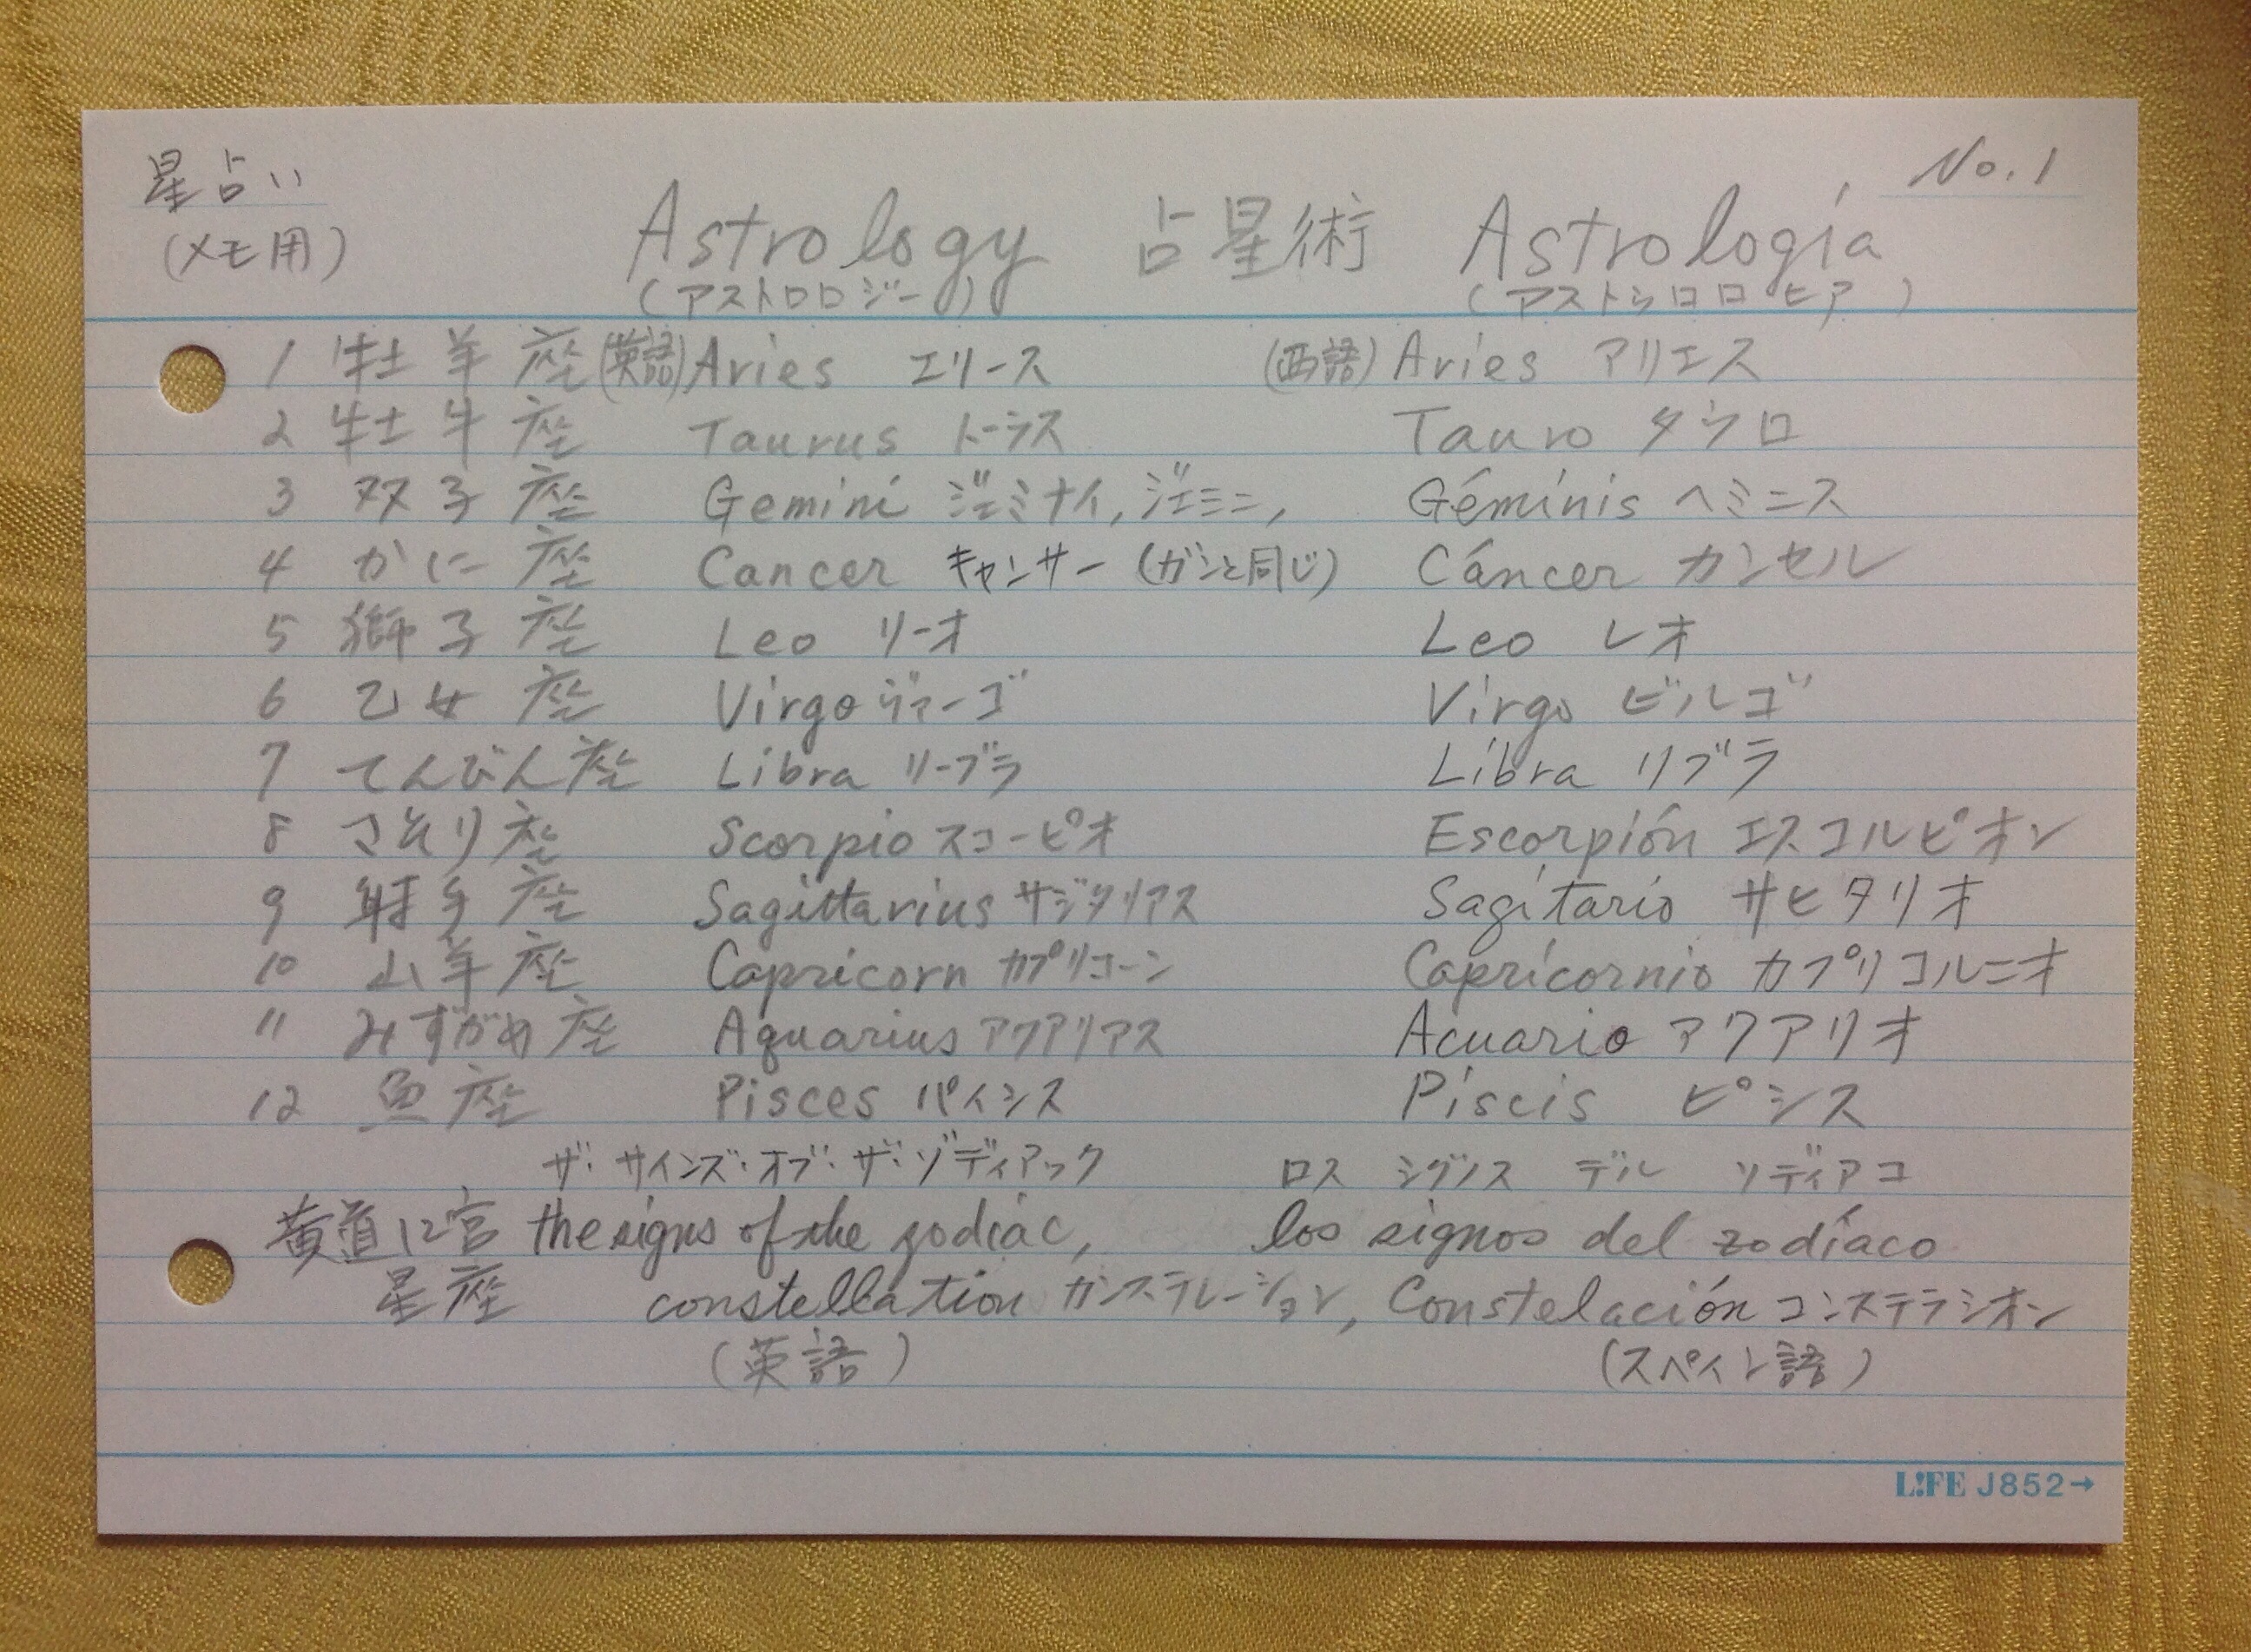 星占い No.1
(メモ用) Astrology 占星術 Astrología
(アストロロジー) (アストゥロロヒア)
1 牡羊座 (英語) Aries エリース (西語) Aries アリエス
2 牡牛座 Taurus トーラス Tauro タウロ
3 双子座 Gemini ジェミナイ, ジェミニ, Géminis ヘミニス
4 かに座 Cancer キャンサー (ガンと同じ) Cáncer カンセル
5 獅子座 Leo リーオ Leo レオ
6 乙女座 Virgo ヴァーゴ Virgo ビルゴ
7 てんびん座 Libra リーブラ Libra リブラ
8 さそり座 Scorpio スコーピオ Escorpión エスコルピオン
9 射手座 Sagittarius サジタリアス Sagitario サヒタリオ
10 山羊座 Capricorn カプリコーン Capricornio カプリコルニオ
11 みずがめ座 Aquarius アクアリアス Acuario アクアリオ
12 魚座 Pisces パイシス Piscis ピシス
ザ・サインズ・オブ・ザ・ゾディアック ロス シグノス デル ソディアコ
黄道12宮 the signs of the zodiac, los signos del zodíaco
星座 constellation カンステレーション, Constelación コンステラシオン
(英語) (スペイン語)
L!FE J852→